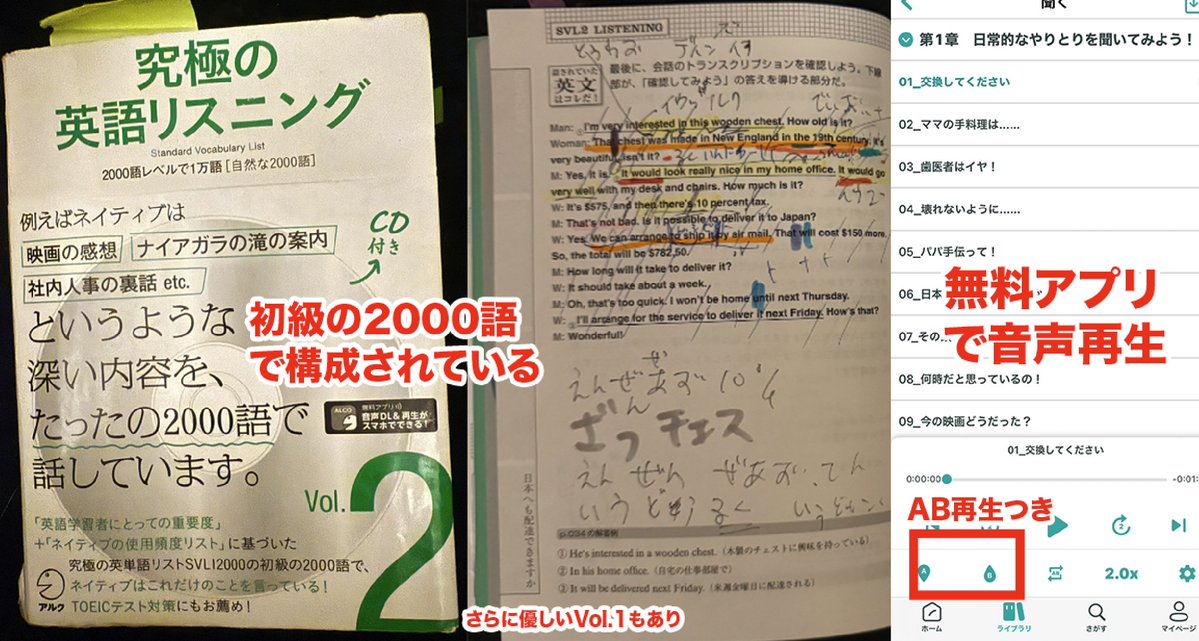 究極の
英語リスニング
Standard Vocabulary List
2000語レベルで1万語［自然な2000語］
例えばネイティブは
映画の感想
ナイアガラの滝の案内
社内人事の裏話 etc.
CD
付き
というような
深い内容を、
たったの2000語で
話しています。
ALCO
無料アプリ
音声DL&再生が
スマホでできる!
Vol.
2
「英語学習者にとっての重要度」
+「ネイティブの使用頻度リスト」に基づいた
究極の英単語リストSVL12000の初級の2000語で、
ネイティブはこれだけのことを言っている!
アルク
TOEICテスト対策にもお薦め!
初級の2000語
で構成されている
SVL2 LISTENING
話されていた
英文
はコレだ!
最後に、会話のトランスクリプションを確認しよう。下線
部が、「確認してみよう」の答えを導ける部分だ。
Man: I'm very interested in this wooden chest. How old is it?
Woman: That chest was made in New England in the 19th century. It's
very beautiful, isn't it?
M: Yes, it is. It would look really nice in my home office. It would go
very well with my desk and chairs. How much is it?
W: It's $575, and then there's 10 percent tax.
M: That's not bad. Is it possible to deliver it to Japan?
W: Yes. We can arrange to ship it by air mail. That will cost $150 more.
So, the total will be $782.50.
M: How long will it take to deliver it?
W: It should take about a week.
M: Oh, that's too quick. I won't be home until next Thursday.
W: I'll arrange for the service to deliver it next Friday. How's that?
M: Wonderful!
えんぜあず 10%
ざっ チェス
日本へも配達できますか
p.034の解答例
① He's interested in a wooden chest.（木製のチェストに興味を持っている）
② In his home office.（自宅の仕事部屋で）
③ It will be delivered next Friday.（来週金曜日に配達される）
さらに優しいVol.1もあり
聞く
第1章 日常的なやりとりを聞いてみよう!
01_交換してください
02_ママの手料理は……
03_歯医者はイヤ!
04_壊れないように……
05_パパ手伝って!
06_日本
07_その
08_何時だと思っているの!
09_今の映画どうだった?
無料アプリ
で音声再生
01_交換してください
0:00:00
-0:01:
AB再生つき
2
A
B
AB
2.0x
ホーム
ライブラリ
さがす
マイページ